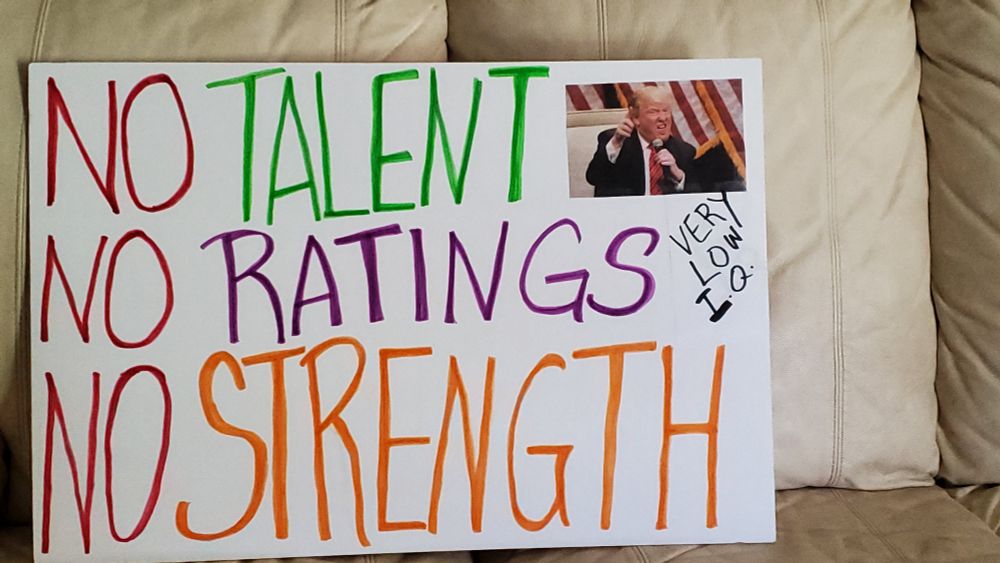 NO TALENT
NO RATINGS
NO STRENGTH
VERY
LOW
I.Q.